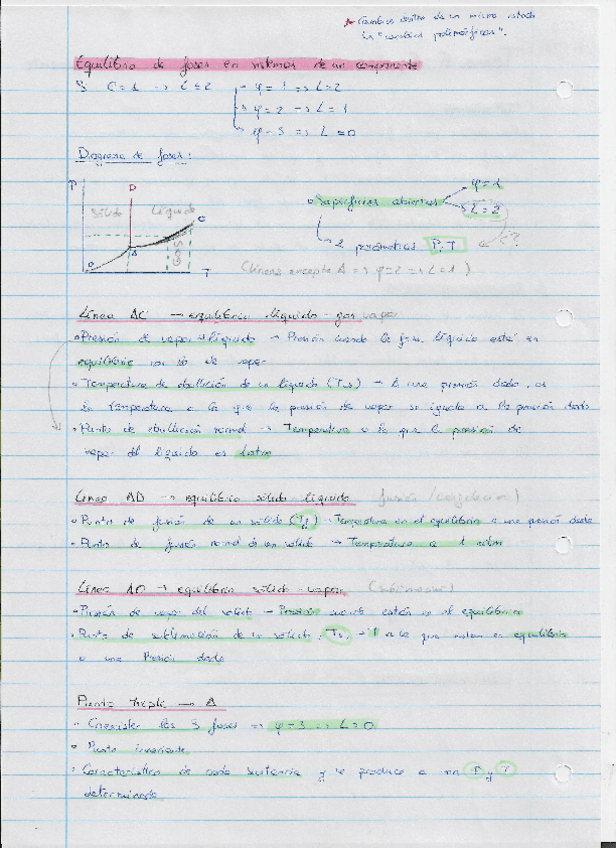 * Cambios dentro de un mismo estado
"cambios polimórficos".
Equilibrio de fases en sistemas de un componente
Si C=1 → L≤2
φ=1 ⇒ L=2
φ=2 → L=1
φ=3 ⇒ L=0
Diagrama de fases:
P
D
Sólido
Líquido
C
Gas
A
O
T
• Superficies abiertas
φ=1
L=2
2 parámetros P,T
¿?
(Líneas excepto A ⇒ φ=2 ⇒ L=1)
Línea AC → equilibrio líquido-gas vapor
• Presión de vapor líquido → Presión cuando la fase líquido está en
equilibrio con la de vapor
• Temperatura de ebullición de un líquido → A una presión dada, es
la temperatura a la que la presión de vapor se iguala a la presión dada
• Punto de ebullición normal → Temperatura a la que la presión de
vapor del líquido es 1 atm
Línea AD → equilibrio sólido líquido (fusión/congelación)
• Punto de fusión de un sólido (Tf) → Temperatura en el equilibrio a una presión dada
• Punto de fusión normal de un sólido → Temperatura a 1 atm
Línea AO → equilibrio sólido-vapor (sublimación)
• Presión de vapor del sólido → Presión cuando están en el equilibrio
• Punto de sublimación de un sólido, Ts → T a la que están en equilibrio
a una Presión dada
Punto triple → A
- Coexisten las 3 fases ⇒ φ=3 ∴ L=0
• Punto invariante
• Característico de cada sustancia y se produce a una P y T
determinada